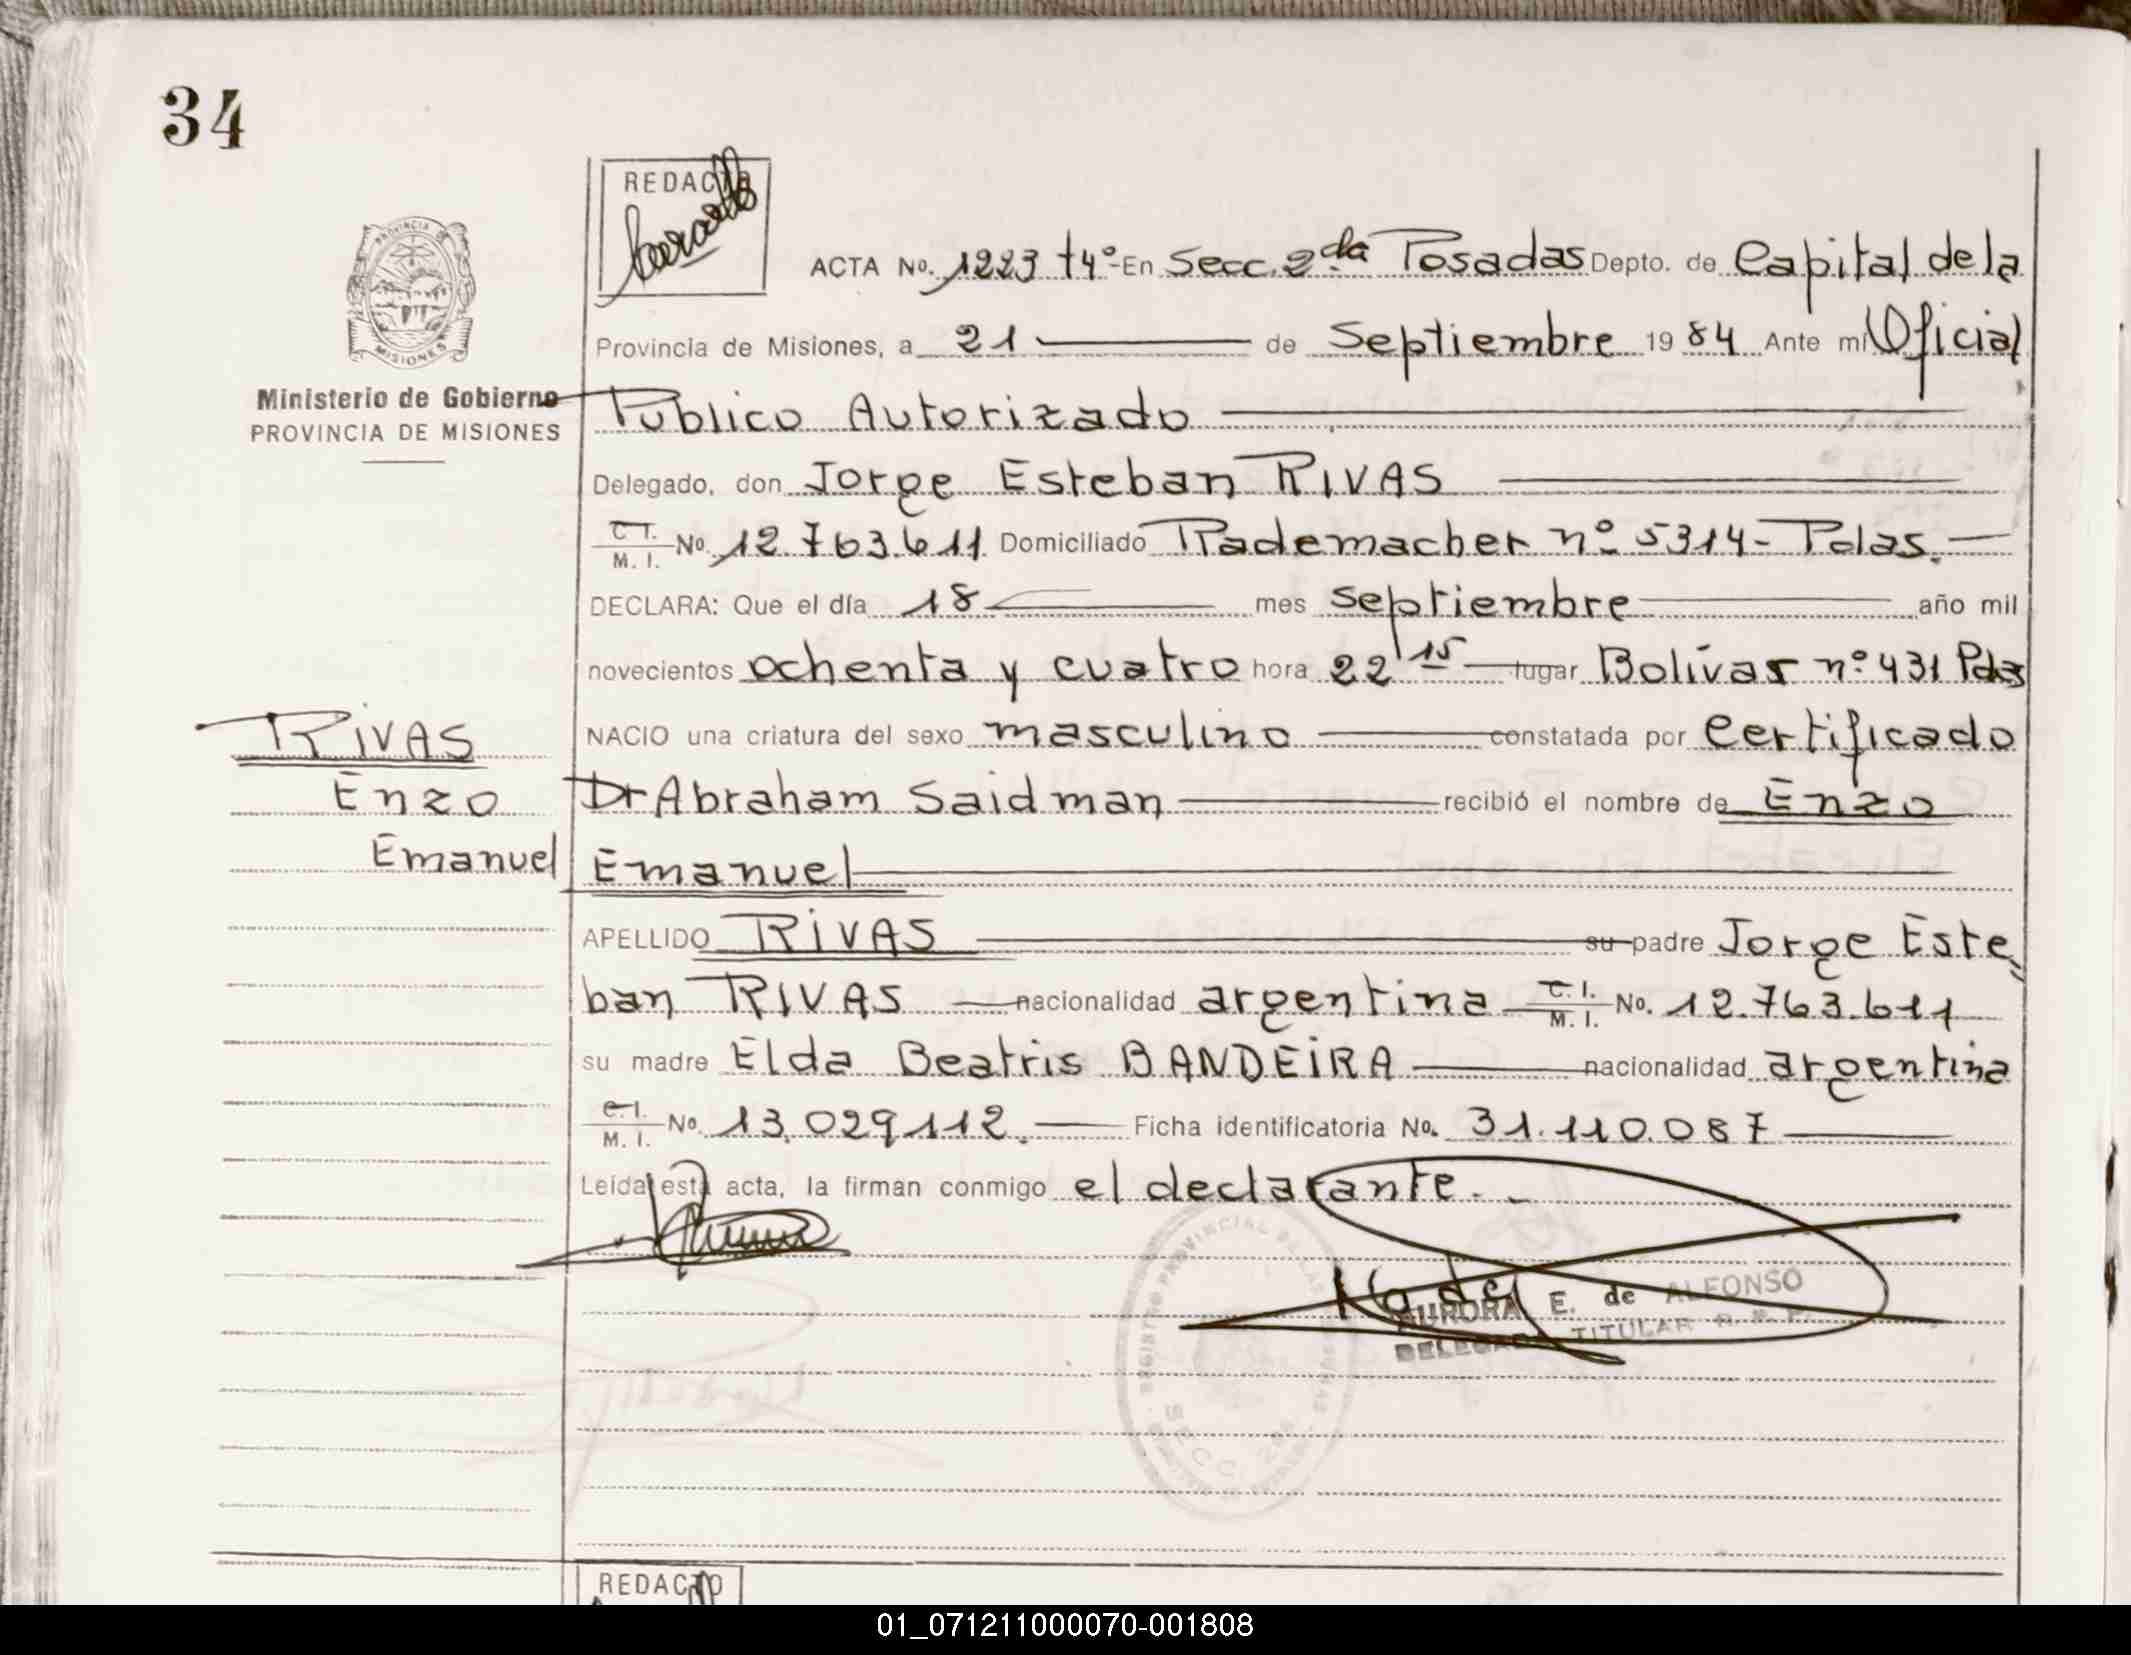 34
REDACTO
ACTA No. 1223 t4º- En Secc. 2da Posadas Depto. de Capital de la
Provincia de Misiones, a 21 de Septiembre 1984 Ante mi Oficial
PROVINCIA DE MISIONES
Ministerio de Gobierno
PROVINCIA DE MISIONES
Publico Autorizado
Delegado, don Jorge Esteban RIVAS
C. I. M. I. No. 12.763.611 Domiciliado Rademacher nº 5314- Pdas.
DECLARA: Que el día 18 mes septiembre año mil
novecientos ochenta y cuatro hora 22 15 lugar Bolívar nº 431 Pdas
NACIO una criatura del sexo masculino constatada por Certificado
Dr Abraham Saidman recibió el nombre de Enzo
Emanuel
RIVAS
Enzo
Emanuel
APELLIDO RIVAS su padre Jorge Este
ban RIVAS nacionalidad argentina C. I. M. I. No. 12.763.611
su madre Elda Beatris BANDEIRA nacionalidad argentina
C. I. M. I. No. 13.029.112. Ficha identificatoria No. 31.110.087
Leída esta acta, la firman conmigo el declarante.
REGISTRO PROVINCIAL DE LAS
SECC. 2da
AURORA E. de ALFONSO
DELEGADA TITULAR R. P. P.
REDACTO
01_071211000070-001808